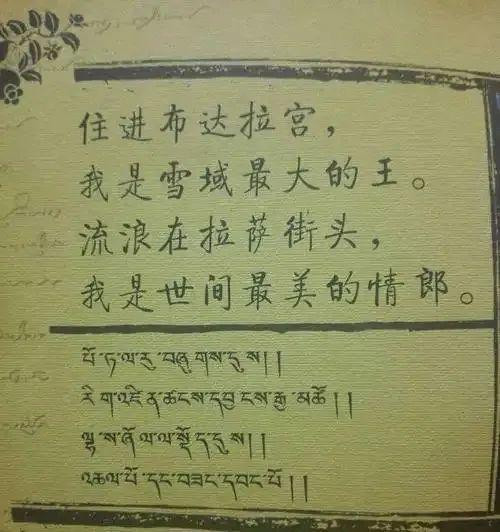 住进布达拉宫，
我是雪域最大的王。
流浪在拉萨街头，
我是世间最美的情郎。
པོ་ཏ་ལ་རུ་བཞུ་གས་དུ་ས།།
རི་ག་འཛི་ན་ཚངས་དབྱ་ངས་རྒྱ་མཚོ།།
ལྷ་ས་ཞོ་ལ་ལ་སྡོ་ད་དུ་ས།།
འཆལ་པོ་དང་བཟང་དབང་པོ།།